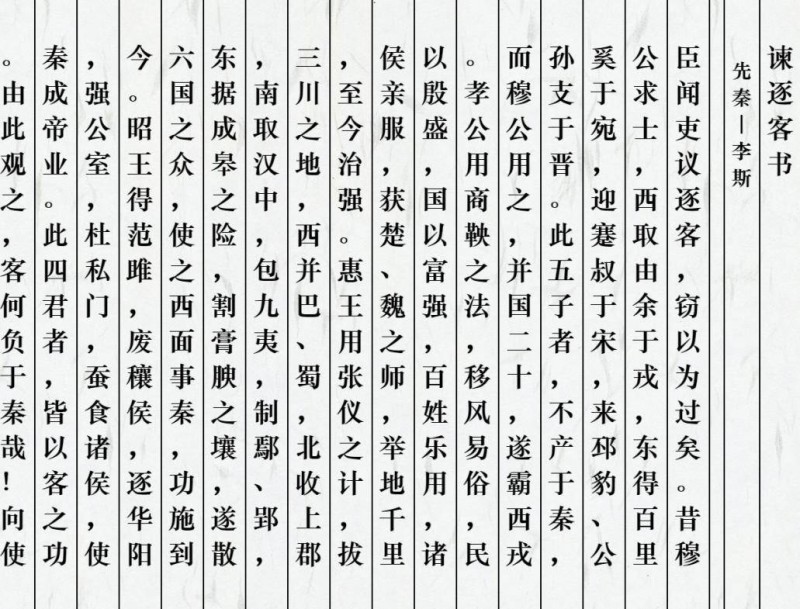 谏逐客书
先秦—李斯
臣闻吏议逐客，窃以为过矣。昔穆
公求士，西取由余于戎，东得百里
奚于宛，迎蹇叔于宋，来邳豹、公
孙支于晋。此五子者，不产于秦，
而穆公用之，并国二十，遂霸西戎
。孝公用商鞅之法，移风易俗，民
以殷盛，国以富强，百姓乐用，诸
侯亲服，获楚、魏之师，举地千里
，至今治强。惠王用张仪之计，拔
三川之地，西并巴、蜀，北收上郡
，南取汉中，包九夷，制鄢、郢，
东据成皋之险，割膏腴之壤，遂散
六国之众，使之西面事秦，功施到
今。昭王得范雎，废穰侯，逐华阳
，强公室，杜私门，蚕食诸侯，使
秦成帝业。此四君者，皆以客之功
。由此观之，客何负于秦哉！向使